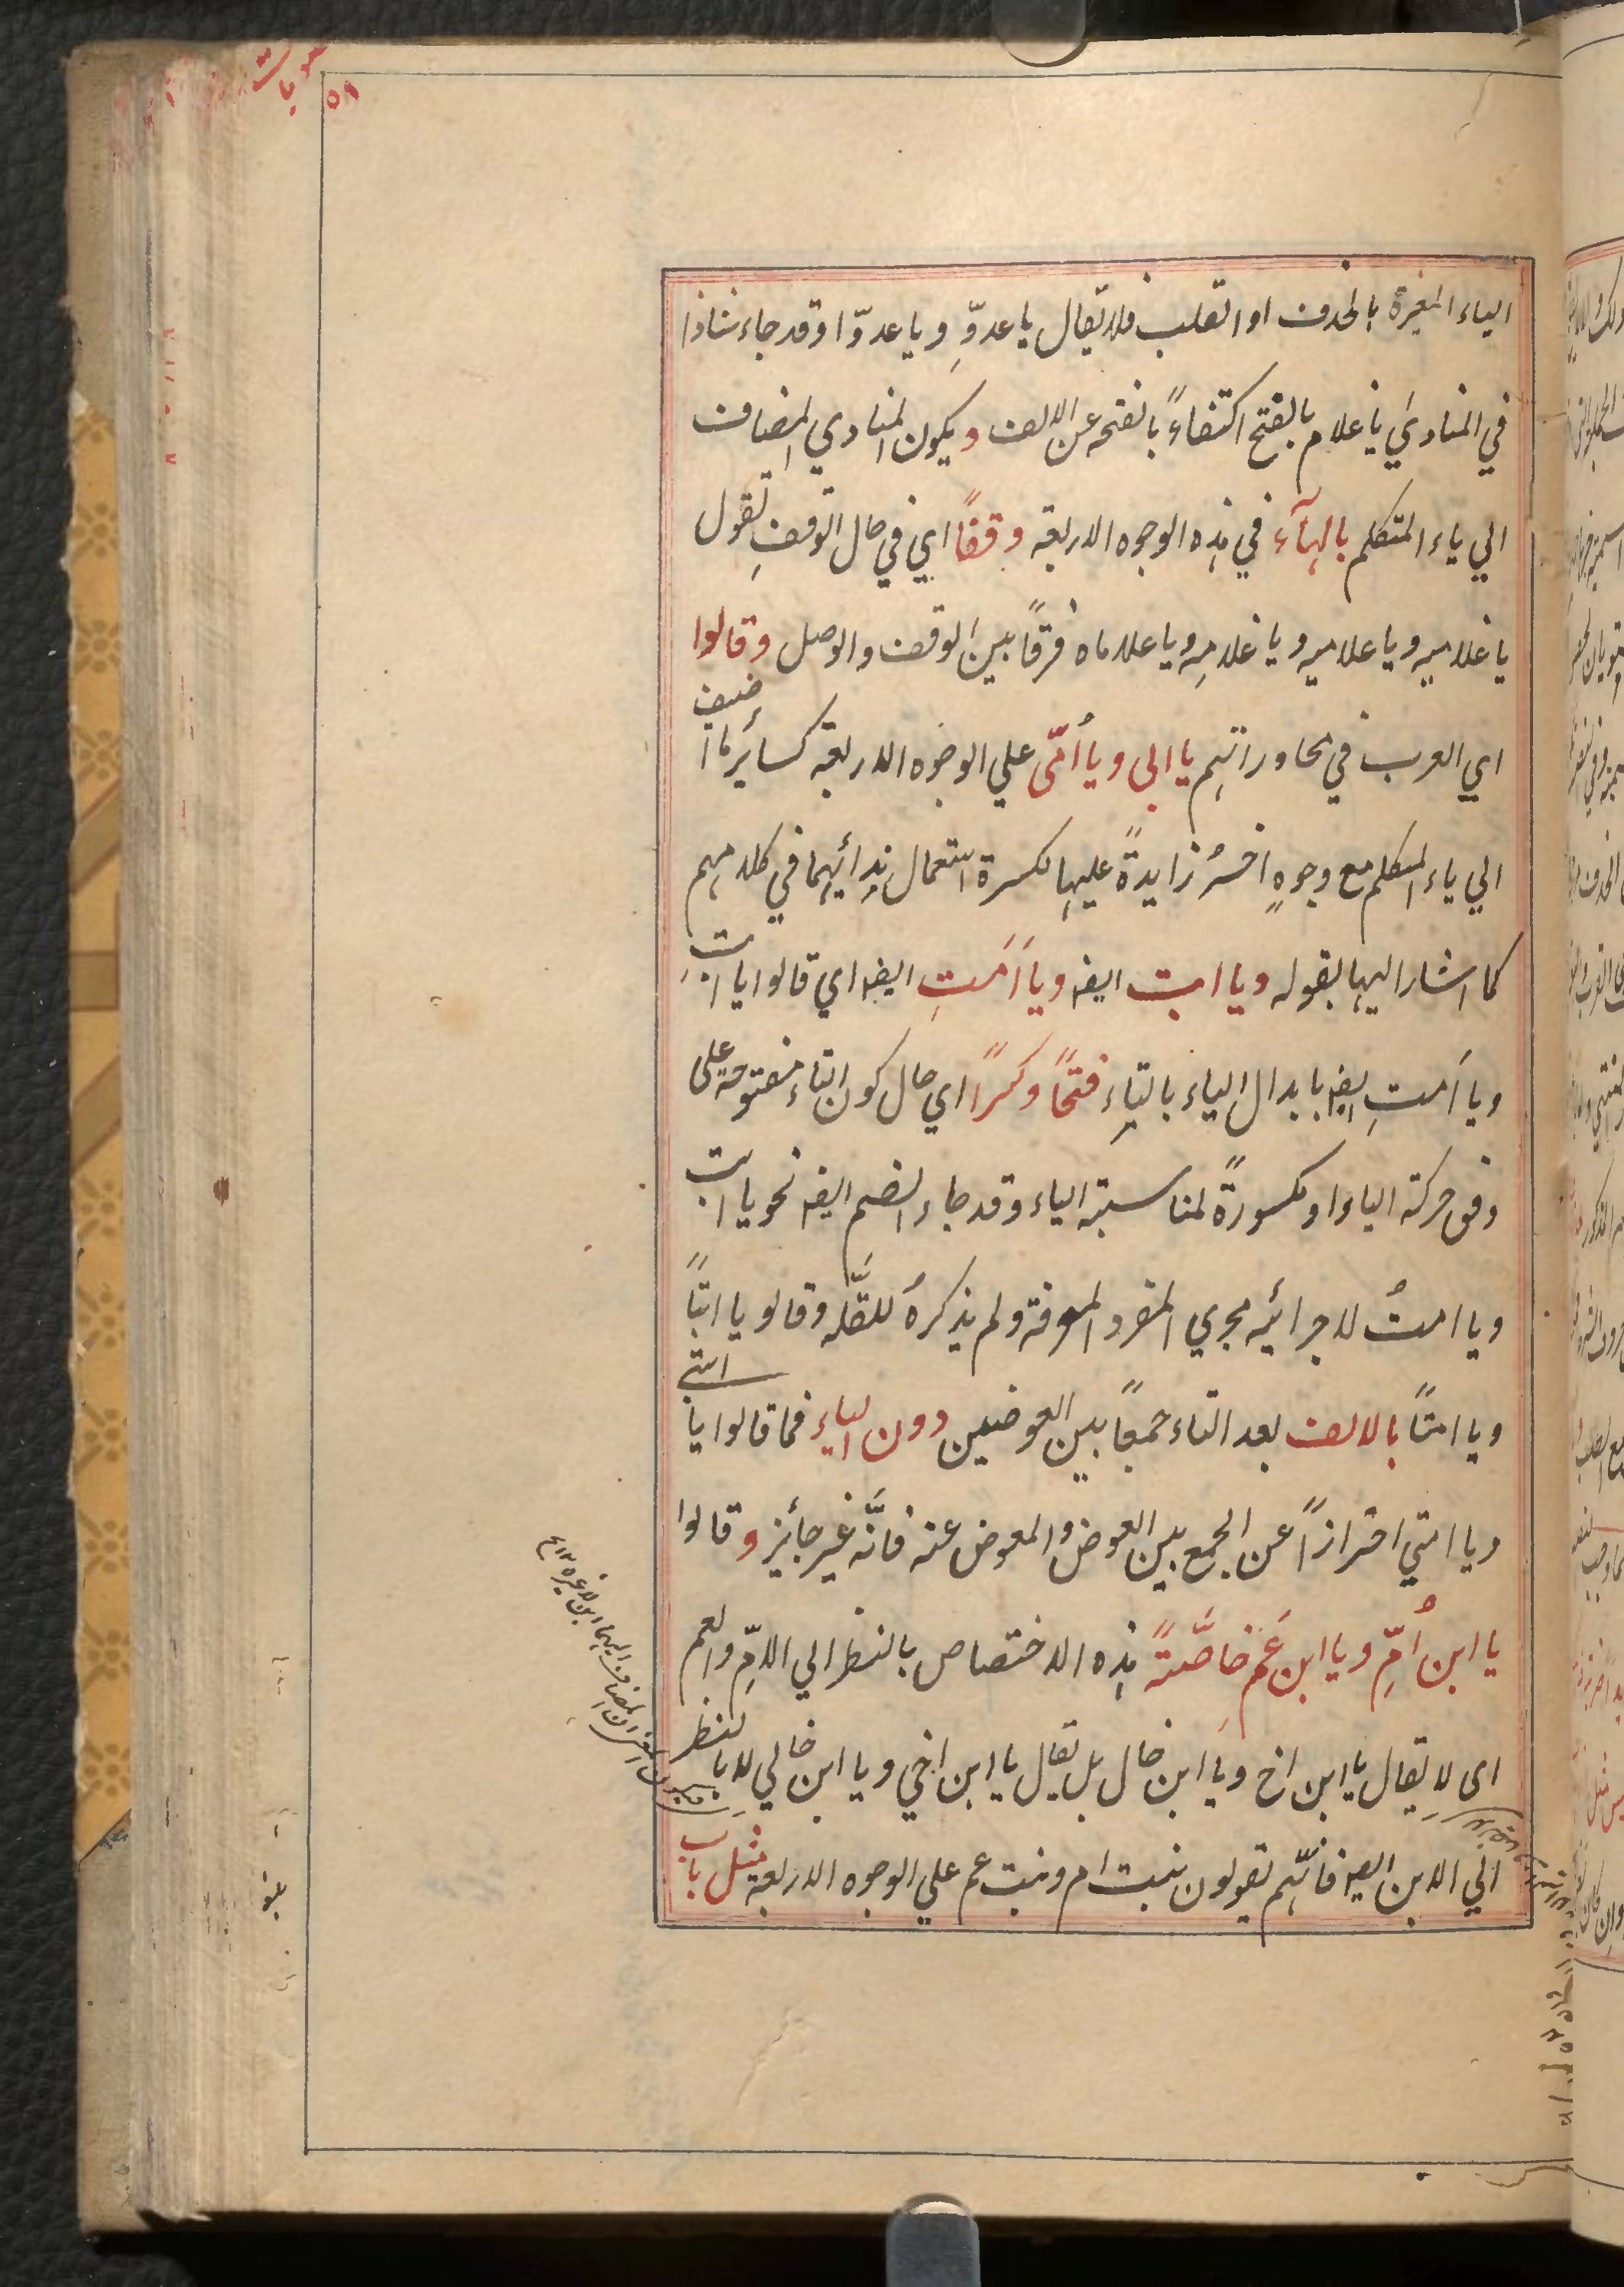 الياء المغيرة بالحذف او القلب فلا يقال يا عدوِّ ويا عدوّا وقد جاء شاذا
في المنادي يا غلام بالفتح اكتفاءً بالفتحه عن الالف ويكون المنادي المضاف
الي ياء المتكلم بالهآء في هذه الوجوه الاربعة وقفاً اي في حال الوقفِ تقول
يا غلاميه ويا غلاميه ويا غلامِه ويا غلاماه فرقاً بين الوقف والوصل وقالوا
اي العرب في محاوراتهم يا ابى ويا اُمّى علي الوجوه الاربعة كسائر ما اضيف
الي ياء المتكلم مع وجوهٍ اخرُ زايدةً عليها لكسرة استعمال ندائهما في كلامهم
كما اشار اليها بقوله ويا ابت ايضه ويا اَمَتِ ايضه اي قالوا يا ابتِ
ويا اَمتِ ايضه بابدال الياء بالتاءِ فتحاً وكسراً اي حال كون التاء مفتوحة على
وفق حركة الياء او مكسورةً لمناسبة الياء وقد جاء الضم ايضه نحو يا ابت
ويا امتُ لاجرائه مجري المفرد المعرفة ولم يذكرهُ للقلَّه وقالو يا ابتاً
ويا امتاً بالالف بعد التاء جمعاً بين العوضين دون الياءِ فما قالوا يا ابتي
ويا امتي احترازاً عن الجمع بين العوض والمعوض عنه فانَّه غير جائز وقالوا
يا ابن اُمِّ ويا ابن عَم خاصَّتةً هذه الاختصاص بالنظر الي الامِّ والعم
اى لا يقال يا ابن اخ ويا ابن خال بل يقال يا ابن اخي ويا ابن خالي لا بالنظر
الي الابن ايضه فانّهم يقولون بنت ام وبنت عم علي الوجوه الاربعة مثل باب